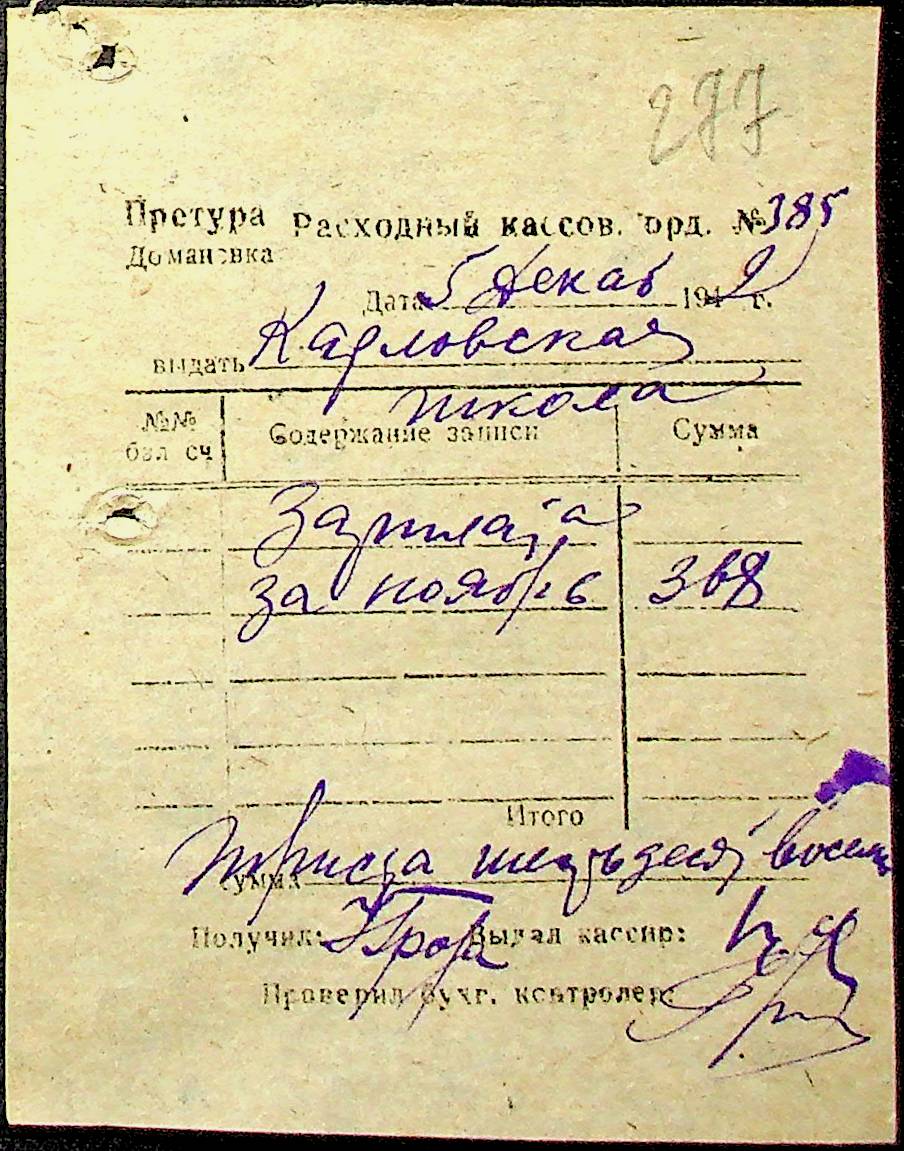 277
Претура Расходный кассов. орд. №385
Домановка
Дата 5 Декаб 1942 г.
выдать Карловская
школа
№№ Содержание записи Сумма
бал сч
Зарплата
за ноябрь 368
Итого
триста шестьдесят восемь
сумма
Получил: Выдал кассир:
Проверил бухг. контролер: